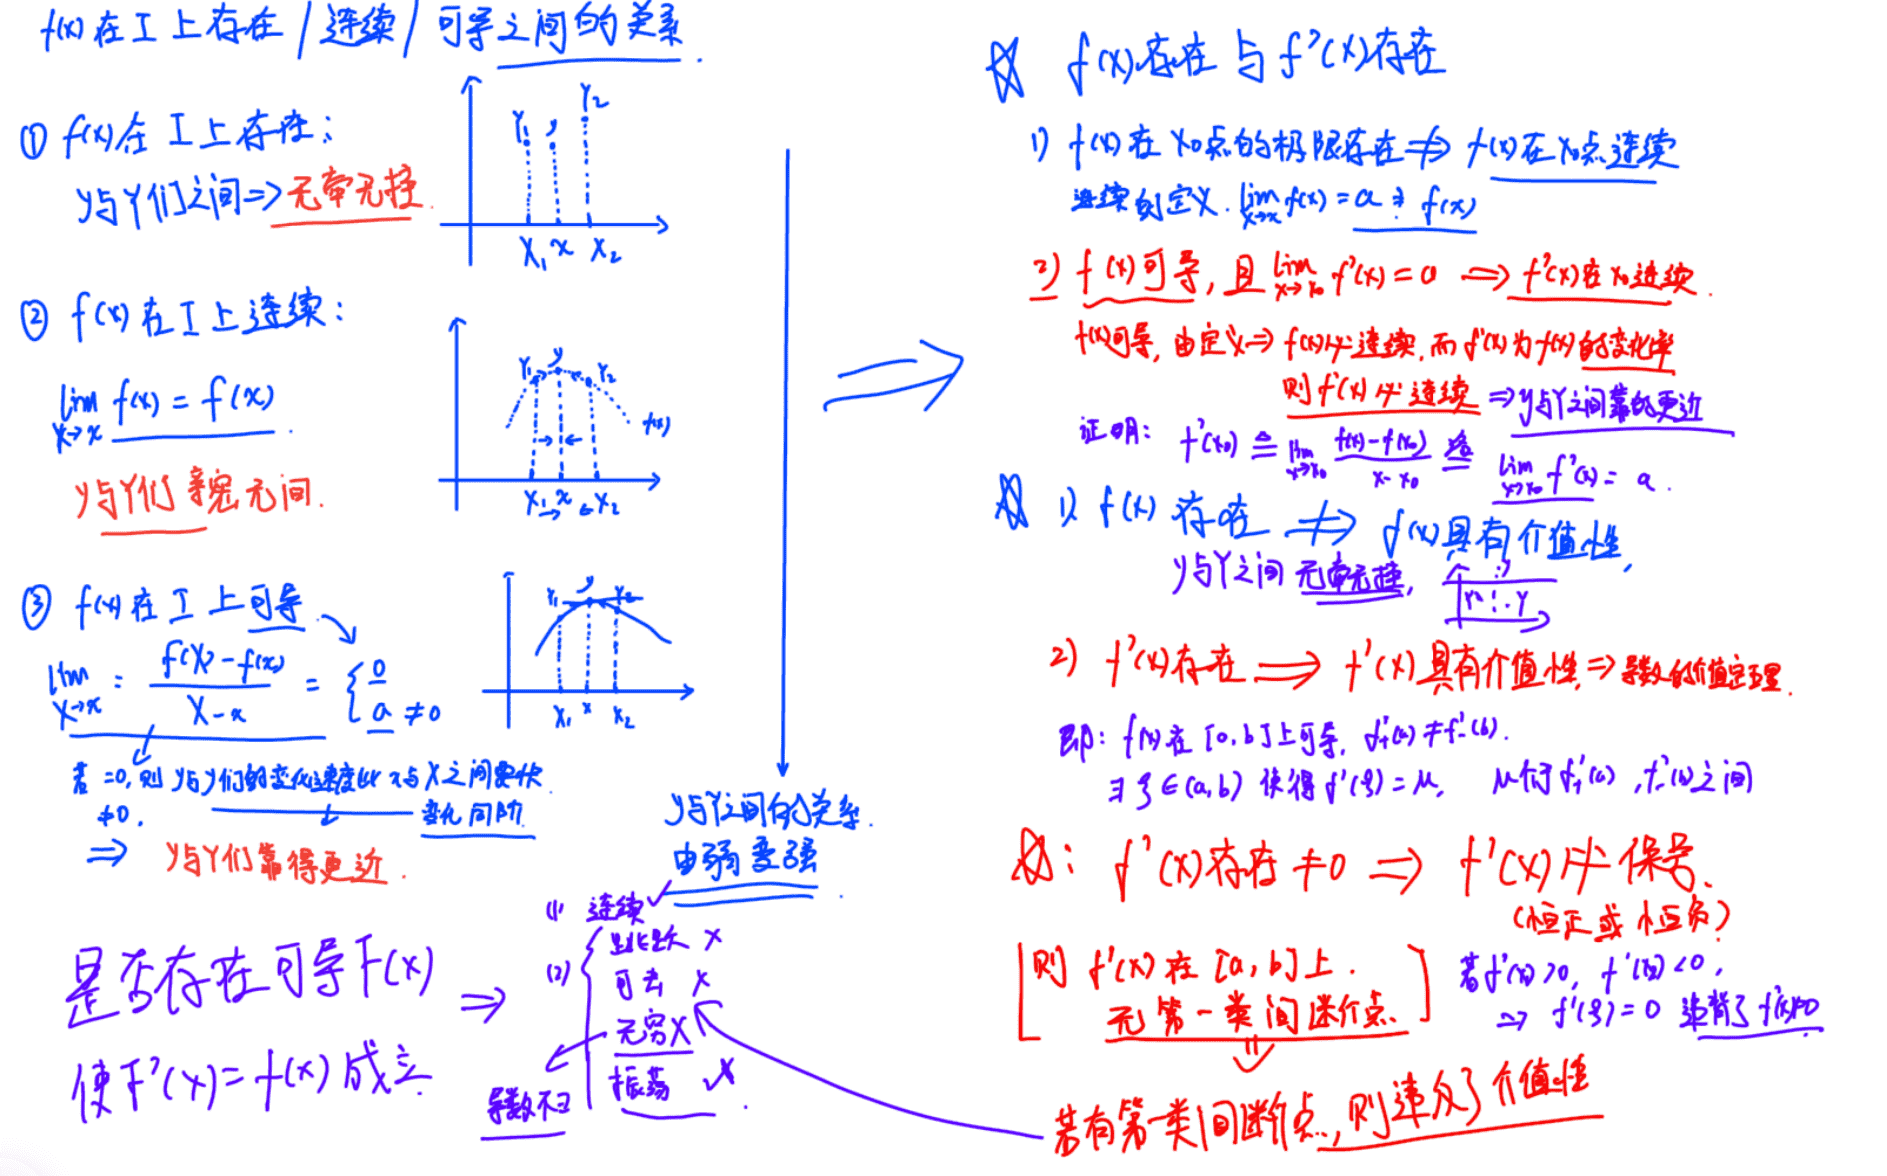 f(x)在I上存在/连续/可导之间的关系.
① f(x)在I上存在:
y与Y们之间⇒无牵无挂.
Y₁ y Y₂
X₁ x X₂
② f(x)在I上连续:
lim X→x f(x)=f(x)
y与Y们亲密无间.
Y₁ y Y₂ f(x)
X₁ x X₂
③ f(x)在I上可导
lim X→x : f(X)-f(x) / X-x = { 0
a ≠0
Y₁ y Y₂
X₁ x X₂
若=0,则y与Y们的变化速度比x与X之间要快.
≠0, 变化同阶.
⇒ y与Y们靠得更近.
y与Y之间的关系.
由弱变强
是否存在可导F(x)
使F'(x)=f(x)成立
⇒
(1) 连续✓
(2) { 跳跃 ×
可去 ×
无穷×
振荡
导数不∃
☆ f(x)存在与f'(x)存在
1) f(x)在x₀点的极限存在⇏f(x)在x₀点连续
连续的定义. lim X→x f(x)=a f(x)
2) f(x)可导,且 lim x→x₀ f'(x)=a ⇒ f'(x)在x₀连续.
f(x)可导,由定义⇒f(x)必连续,而f'(x)为f(x)的变化率
则f'(x)必连续 ⇒y与Y之间靠的更近
证明: f'(x₀) ≜ lim x→x₀ f(x)-f(x₀) / x-x₀ 洛= lim x→x₀ f'(x)=a.
☆ 1) f(x)存在 ⇏ f(x)具有介值性,
y与Y之间无牵无挂,
2) f'(x)存在 ⇒ f'(x)具有介值性⇒导数的介值定理.
即: f(x)在[a,b]上可导, f'₊(a)≠f'₋(b).
∃ξ∈(a,b)使得f'(ξ)=μ, μ介于f'₊(a),f'₋(b)之间
☆: f'(x)存在≠0 ⇒ f'(x)必保号.
(恒正或恒负)
[则f'(x)在[a,b]上.
无第一类间断点.]
若f'(x)>0, f'(x)<0,
⇒ f'(ξ)=0 违背了f'(x)≠0
若有第一类间断点,则违反了介值性